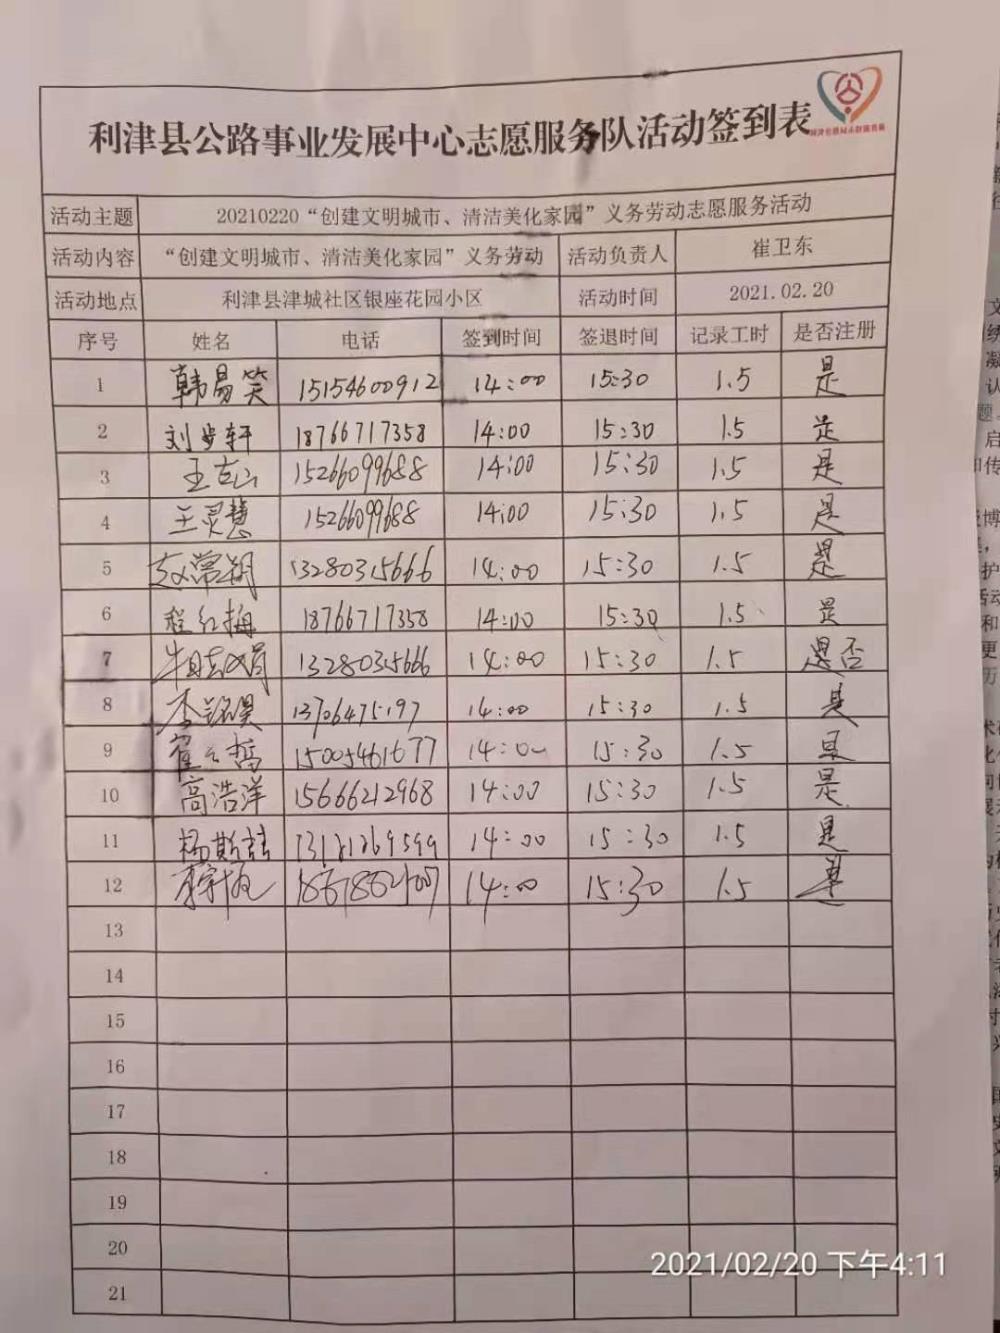 利津县公路事业发展中心志愿服务队活动签到表
活动主题 20210220“创建文明城市、清洁美化家园”义务劳动志愿服务活动
活动内容 “创建文明城市、清洁美化家园”义务劳动 活动负责人 崔卫东
活动地点 利津县津城社区银座花园小区 活动时间 2021.02.20
序号 姓名 电话 签到时间 签退时间 记录工时 是否注册
1 韩易笑 15154600912 14:00 15:30 1.5 是
2 刘步轩 18766717358 14:00 15:30 1.5 是
3 王志山 15266099688 14:00 15:30 1.5 是
4 王灵慧 15266099688 14:00 15:30 1.5 是
5 赵常翔 13280315666 14:00 15:30 1.5 是
6 程红梅 18766717358 14:00 15:30 1.5 是
7 13280315666 14:00 15:30 1.5 是否
8 李铭昊 13706475197 14:00 15:30 1.5 是
9 15005461677 14:00 15:30 1.5 是
10 高浩洋 15666212968 14:00 15:30 1.5 是
11 14:00 15:30 1.5 是
12 14:00 15:30 1.5 是
13
14
15
16
17
18
19
20
21
2021/02/20 下午4:11